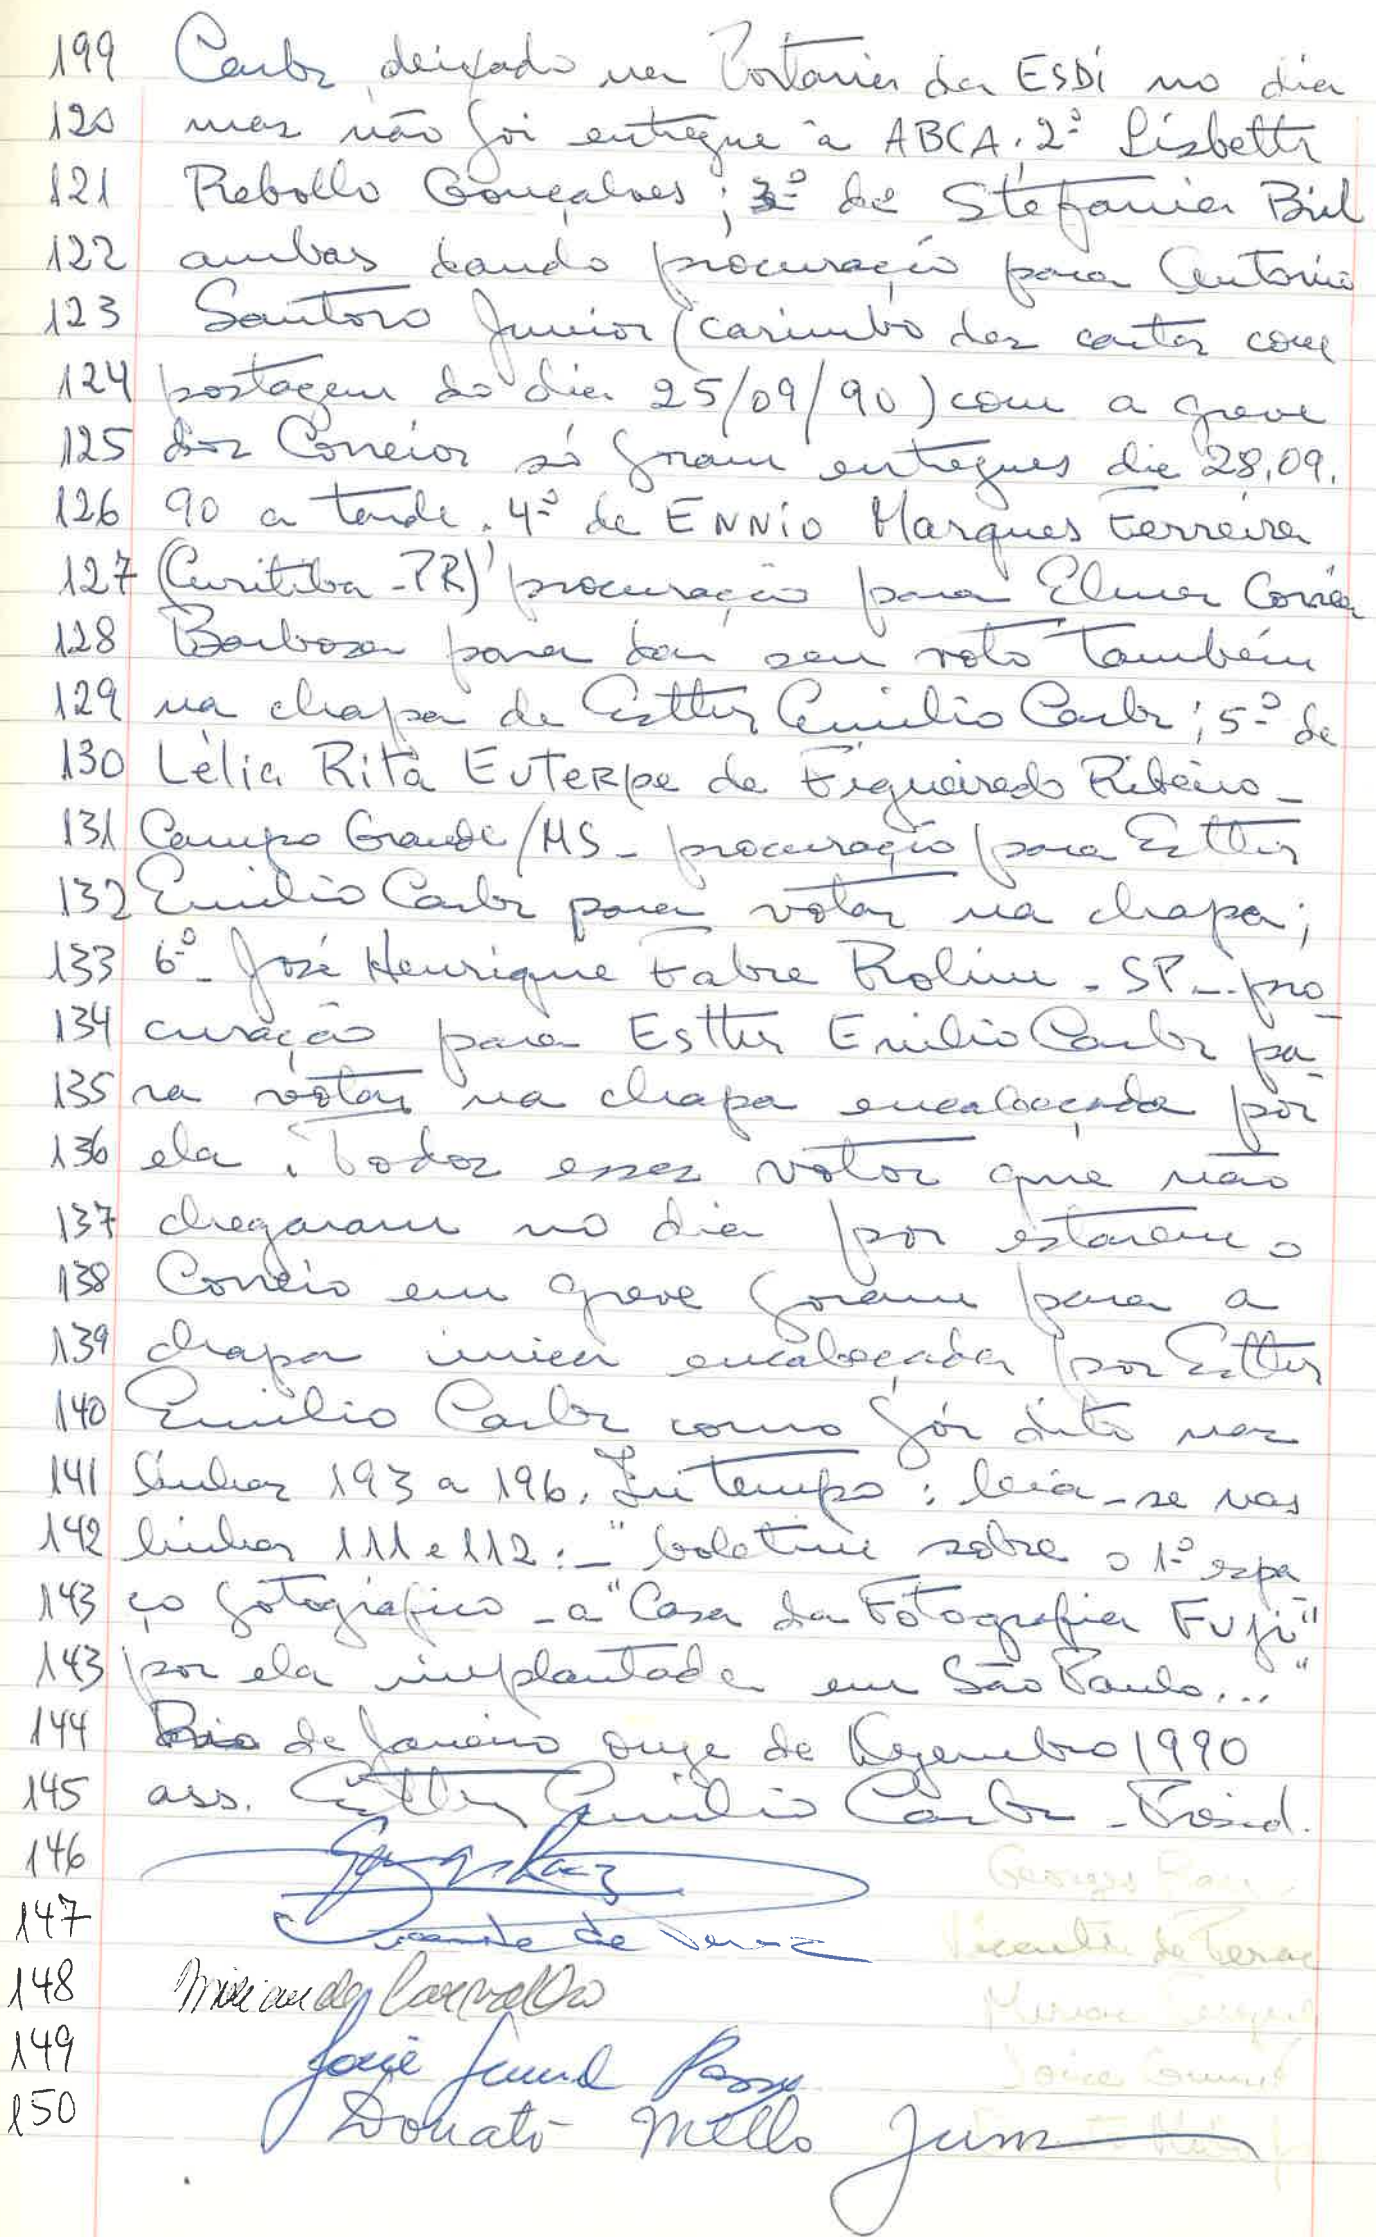 199 Carlos deixado na Portaria da ESDI no dia
120 mas não foi entregue à ABCA. 2º Lisbeth
121 Rebollo Gonçalves; 3º de Stefania Bril
122 ambas dando procuração para Antonio
123 Santoro Junior (carimbo das cartas com
124 postagem do dia 25/09/90) com a greve
125 dos Correios só foram entregues dia 28.09.
126 90 a tarde. 4º de ENNIO Marques Ferreira
127 (Curitiba-PR) procuração para Elmer Corrêa
128 Barbosa para dar seu voto também
129 na chapa de Esther Emilio Carlos; 5º de
130 Lélia Rita EUTERpe de Figueiredo Ribeiro_
131 Campo Grande/MS - procuração para Esther
132 Emilio Carlos para votar na chapa;
133 6º- José Henrique Fabre Rolim - SP - pro_
134 curação para Esther Emilio Carlos pa-
135 ra votar na chapa encabeçada por
136 ela. Todos esses votos que não
137 chegaram no dia por estarem o
138 Correio em greve foram para a
139 chapa unica encabeçada por Esther
140 Emilio Carlos como foi dito nas
141 linhas 193 a 196. Em tempo: leia-se nas
142 linhas 111 e 112:- "boletim sobre o 1º espa
143 ço fotográfico - a "Casa da Fotografia Fuji"
143 por ela implantada em São Paulo..."
144 Rio de Janeiro onze de Dezembro 1990
145 ass. Esther Emilio Carlos - Presid.
146 Georges
147 Vicente de
148 Miriam de Carvalho
149 José
150 Donato Mello Junior